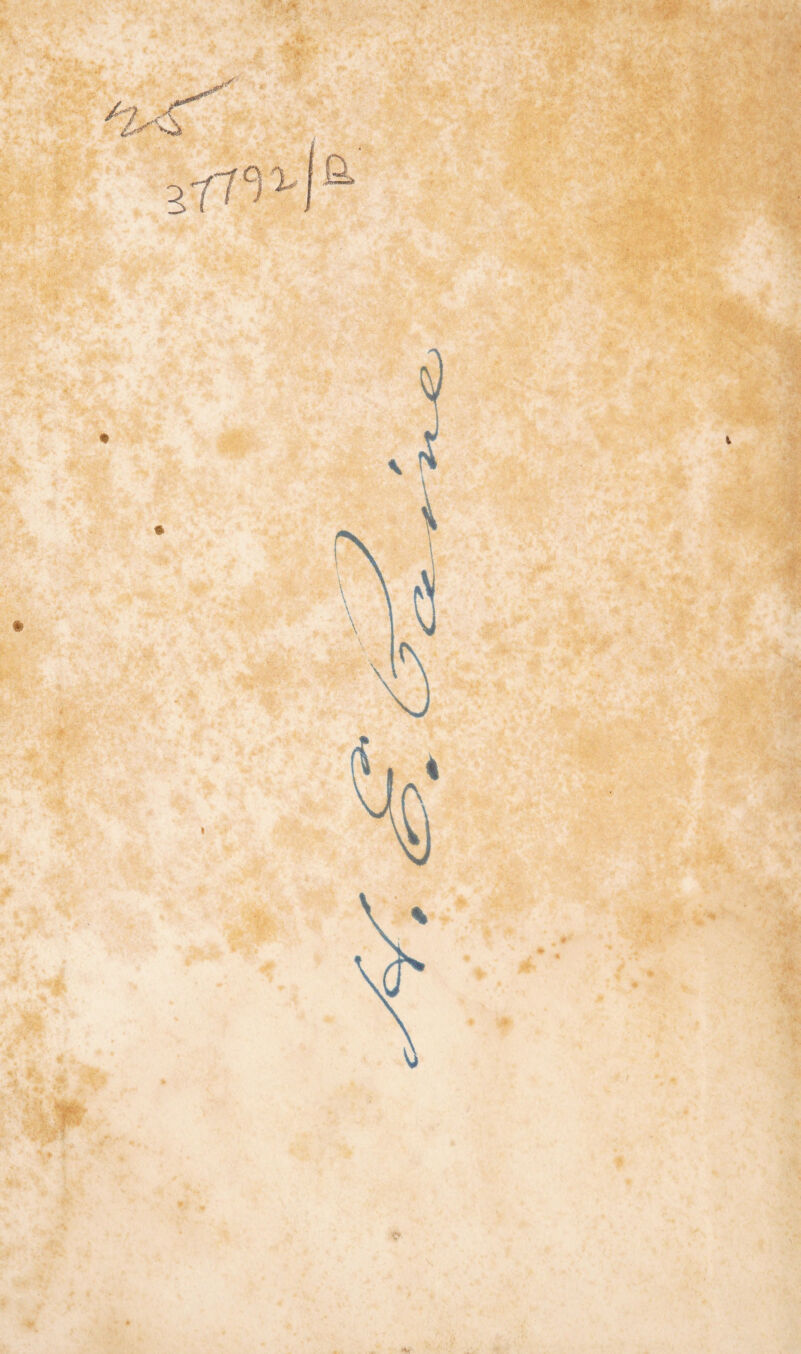 25
37792/B
H. E. Caine